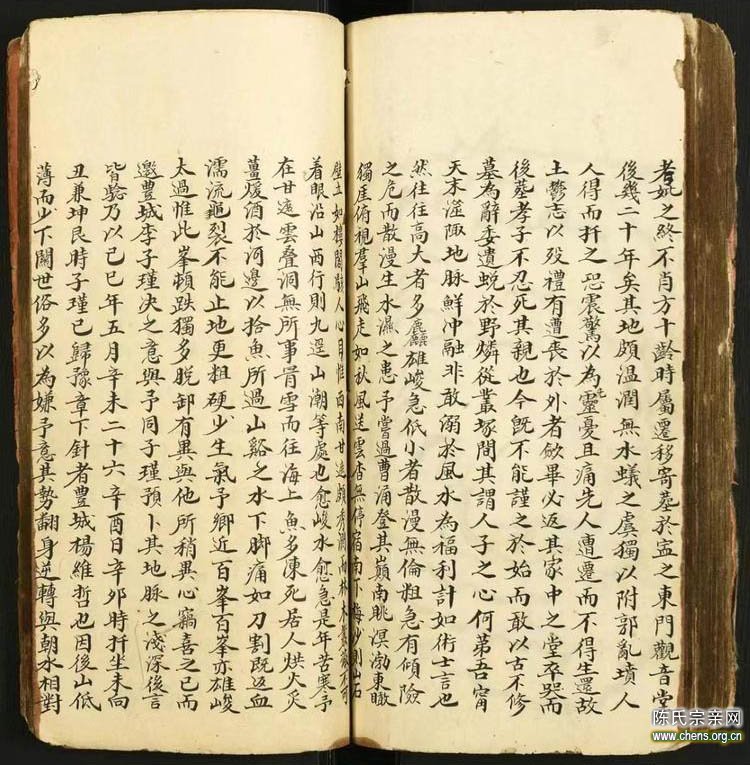 考妣之終不肖方十齡時屬遷移寄葬於宣之東門觀音堂
後幾二十年矣其地頗溫潤無水蟻之虞獨以附郭亂墳人
人得而扦之恐震驚以為先靈憂且痛先人遭遷而不得生還故
土鬱志以歿禮有遭喪於外者歛畢必返其家中之堂卒哭而
後葬孝子不忍死其親也今既不能謹之於始而敢以古不修
墓為辭委遺蛻於野燐從叢塚間其謂人子之心何第吾甯
天末滋陬地脉鮮冲融非敢溺於風水為福利計如術士言也
然往往高大者多麤雄峻急低小者散漫無倫粗急有傾險
之危而散漫生水濕之患予嘗過曹涌登其巔南眺溟渤東瞰
獨崖俯視羣山飛走如秋風送雲杳無停宿南下海沙則山石
壁立如樓閣駭人心目惟西南甘遠頗秀潤而林木
着眼沿山兩行則九逕山潮等處也愈峻水愈急是年苦寒予
在甘遠雲叠洞無所事冐雪而往海上魚多凍死居人烘火炙
薑煖酒於河邊以拾魚所過山谿之水下脚痛如刀割既返血
濡流龜裂不能止地更粗硬少生氣予鄉近百峯百峯亦雄峻
太過惟此峯頓跌獨多脫卸有異與他所稍異心竊喜之已而
邀豐城李子瑾決之意與予同子瑾預卜其地脉之淺深後言
皆騐乃以己巳年五月辛未二十六辛酉日辛夘時扦坐未向
丑兼坤艮時子瑾已歸豫章下針者豊城楊維哲也因後山低
薄而少下關世俗多以為嫌予意其勢翻身逆轉與朝水相對
陈氏宗亲网
www.chens.org.cn